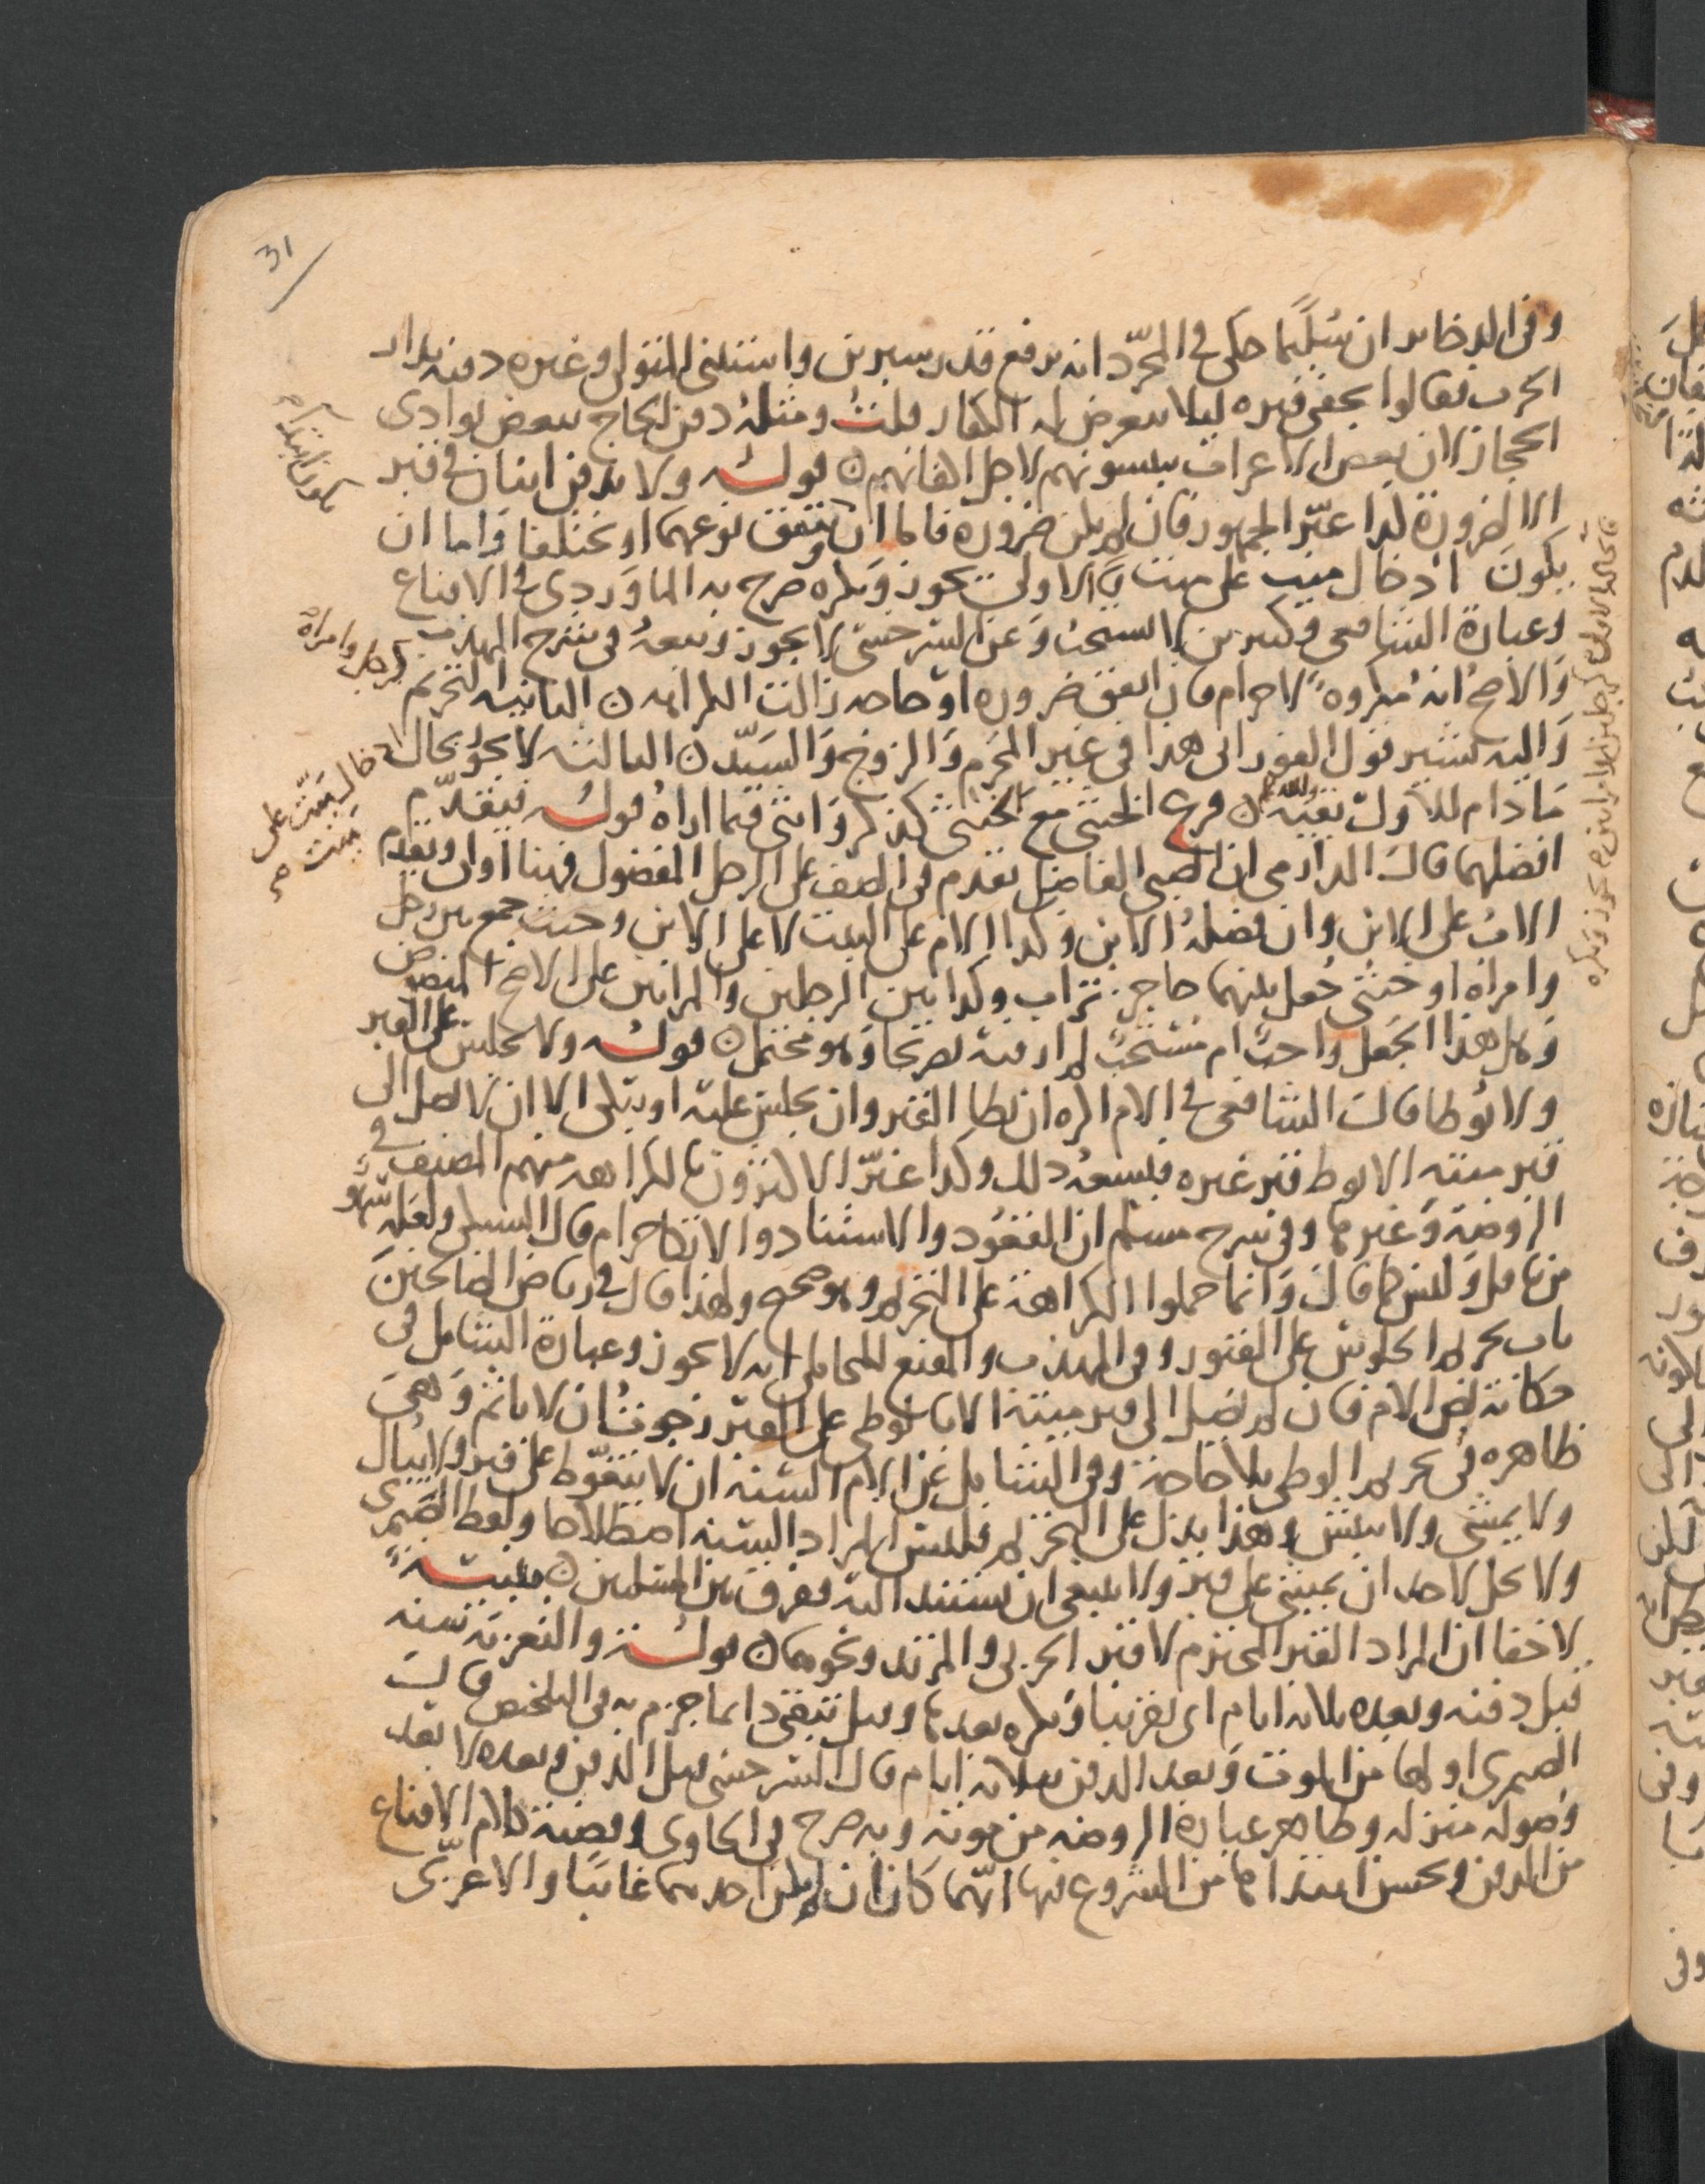 31
وفى الدخاىر ان سُليمًا حكى في المجرّد انه يرفع قدر شبرين واستثنى المتولي وغيره دفنه بدار
الحرب فقالوا يخفى قبره ليلا يتعرض له الكفار قلتُ ومثله دفن الحاج ببعض بوادى
الحجاز لان بعض الاعراب ينبشونهم لاجل اكفانهم ٥ قوله ولا يدفن اثنان في قبر
الا لضرورة كذا عبّر الجمهور فان لم يكن ضرورة فاما ان يتفق نوعهما او يختلفا واما ان
يكون ادخال ميت على ميت الاولى يجوز ويكره صرح به الماوردى في الاقناع
وعبارة الشافعى وكثيرين لا يستحب وعن السرخسى لا يجوز وتبعهُ في شرح المهذب
والاصحُ انه مكروه لا حرام فان اتفق ضروره او حاجه زالت الكراهه ٥ الثانيه التحريم
واليه يشير قول الفورانى هذا في غير المحرم والزوج والسيّد ٥ الثالثه لا يجوز بحال
مادام للاول بقيّه ٥ فرع الخنثى مع الخنثى كذكر وانثى فيما اراه قوله فيقدّم
افضلهما قال الدارمى ان الصبى الفاضل يقدم في الصف على الرجل المفضول فهنا اولى ويقدم
الاب على الابن وان فضله الابن وكذا الام على البنت لا على الابن وحيث جمع بين رجل
وامراه او خنثى جُعل بينهما حاجز تراب وكذا بين الرجلين والمراتين على الاصح المنصوص
وهل هذا الجعل واجب ام مستحبّ لم ار فيه تصريحا وهو محتمل ٥ قوله ولا يجلس على القبر
ولا يُوطا قال الشافعى في الام اكره ان يطا القبر وان يجلس عليه او يتكى الا ان لا يصل الى
قبر ميته الا بوط قبر غيره فيسعهُ ذلك وكذا عبّر الاكثرون بالكراهه منهم المصنف في
الروضة وغيرها وفي شرح مسلم ان القعود والاستناد والاتكا حرام قال السبكى ولعله سهو
من تامل وليس كما قال وانما حملوا الكراهة على التحريم وهو صحيح ولهذا قال في رياض الصالحين
باب تحريم الجلوس على القبور وفي المهذب والمقنع للمحاملى انه لا يجوز وعبارة الشامل في
حكاية نص الام فان لم يصل الى قبر ميته الا بان يوطى على القبر رجوتُ ان لا ياثم وهى
ظاهره في تحريم الوطى بلا حاجة وفي الشامل عن الام السنه ان لا يتغوّط على قبر ولا يبال
ولا يمشى ولا ينبش وهذا يدل على التحريم فليس المراد السنه اصطلاحا ولفظ الصيمرى
ولا يحل لاحد ان يمشى على قبر ولا ينبغى ان يستند اليه تفرق بين المسلمين ٥ تنبيه
لا خفا ان المراد القبر المحترم لا قبر الحربى والمرتد ونحوهما ٥ قوله والتعزية سنه
قبل دفنه وبعده ثلاثه ايام اى تقريبا ويكره بعدها وقيل تبقى دايما جزم به في التلخيص قال
الصيمرى اولها من الموت وبعد الدفن بثلاثه ايام قال السرخسى قبل الدفن وبعده لا بعد
وصوله منزله وظاهر عباره الروضه من موته وبه صرح في الحاوى وقضية كلام الاقناع
من الدفن ويحسن ابتداها من الشروع فيها ايّما كان ان لم يكن احدهما غايبا والا عزّى
يكون ابتداء م
كرجل وامراة
ادخال ميّت على
ميّت ص